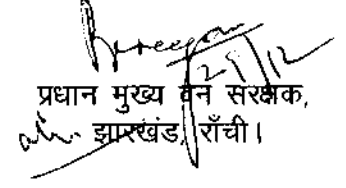 29/12
प्रधान मुख्य वन संरक्षक,
झारखंड, राँची।